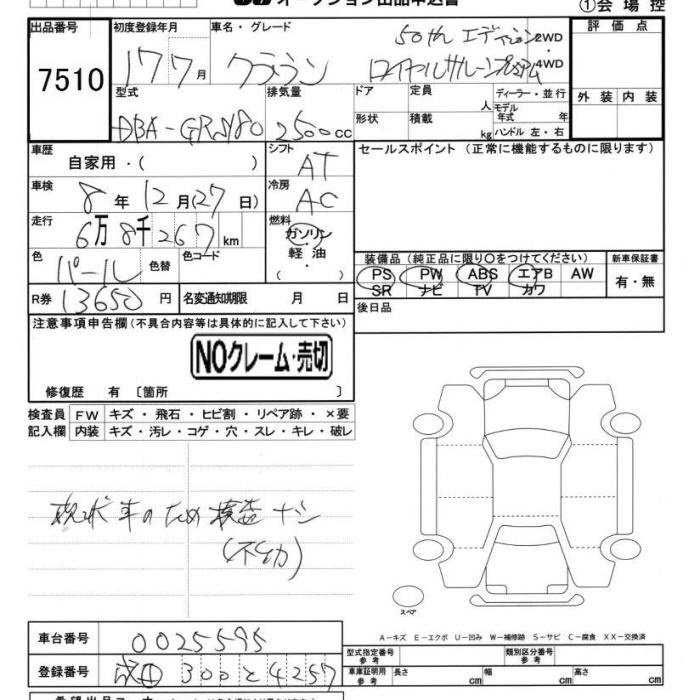 オークション出品申込書
①会場控
出品番号 初度登録年月 車名・グレード 評価点
7510
17 7月 クラウン 50th エディション 2WD・4WD
ロイヤルサルーンプレミアム
型式 排気量 ドア 定員 人 ディーラー・並行 外装 内装
DBA-GRS180 2500cc 形状 積載 kg モデル年式 年 ハンドル 左・右
車歴 シフト セールスポイント(正常に機能するものに限ります)
自家用・( ) AT
車検 冷房
8年12月(27日) AC
走行 燃料
6万8千267km ガソリン
軽油
(・)
色 色替 色コード 装備品(純正品に限り○をつけてください) 新車保証書
パール PS PW ABS エアB AW 有・無
SR ナビ TV カワ
R券 13650円 名変通知期限 月 日 後日品
注意事項申告欄(不具合内容等は具体的に記入して下さい)
NOクレーム・売切
修復歴 有〔箇所 〕
検査員 FW キズ・飛石・ヒビ割・リペア跡・×要
記入欄 内装 キズ・汚レ・コゲ・穴・スレ・キレ・破レ
現状車のため検査ナシ
(不動)
スペア
A-キズ E-エクボ U-凹み W-補修跡 S-サビ C-腐食 XX-交換済
車台番号 0025595 型式指定番号 参考 類別区分番号 参考
登録番号 300 と 4257 車庫証明用 参考 長さ cm 幅 cm 高さ cm